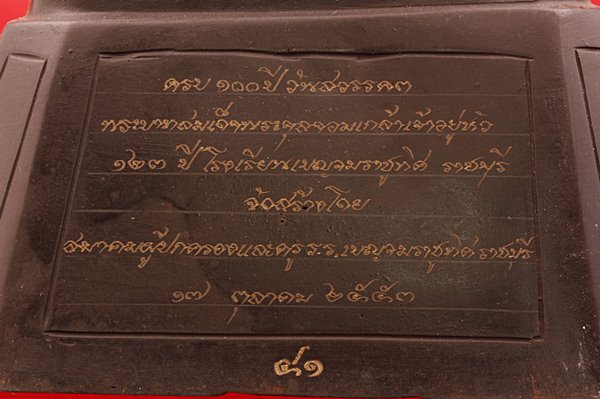 ครบ ๑๐๐ ปี วันสวรรคต
พระบาทสมเด็จพระจุลจอมเกล้าเจ้าอยู่หัว
๑๒๓ ปี โรงเรียนเบญจมราชูทิศ ราชบุรี
จัดสร้างโดย
สมาคมผู้ปกครองและครู ร.ร. เบญจมราชูทิศ ราชบุรี
๑๗ ตุลาคม ๒๕๕๓
๔๑